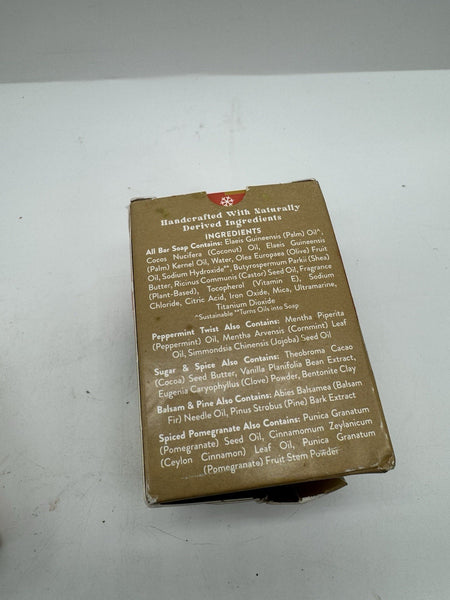 Handcrafted With Naturally
Derived Ingredients
INGREDIENTS
All Bar Soap Contains: Elaeis Guineensis (Palm) Oil^,
Cocos Nucifera (Coconut) Oil, Elaeis Guineensis
(Palm) Kernel Oil, Water, Olea Europaea (Olive) Fruit
Oil, Sodium Hydroxide**, Butyrospermum Parkii (Shea)
Butter, Ricinus Communis (Castor) Seed Oil, Fragrance
(Plant-Based), Tocopherol (Vitamin E), Sodium
Chloride, Citric Acid, Iron Oxide, Mica, Ultramarine,
Titanium Dioxide
^Sustainable **Turns Oils into Soap
Peppermint Twist Also Contains: Mentha Piperita
(Peppermint) Oil, Mentha Arvensis (Cornmint) Leaf
Oil, Simmondsia Chinensis (Jojoba) Seed Oil
Sugar & Spice Also Contains: Theobroma Cacao
(Cocoa) Seed Butter, Vanilla Planifolia Bean Extract,
Eugenia Caryophyllus (Clove) Powder, Bentonite Clay
Balsam & Pine Also Contains: Abies Balsamea (Balsam
Fir) Needle Oil, Pinus Strobus (Pine) Bark Extract
Spiced Pomegranate Also Contains: Punica Granatum
(Pomegranate) Seed Oil, Cinnamomum Zeylanicum
(Ceylon Cinnamon) Leaf Oil, Punica Granatum
(Pomegranate) Fruit Stem Powder